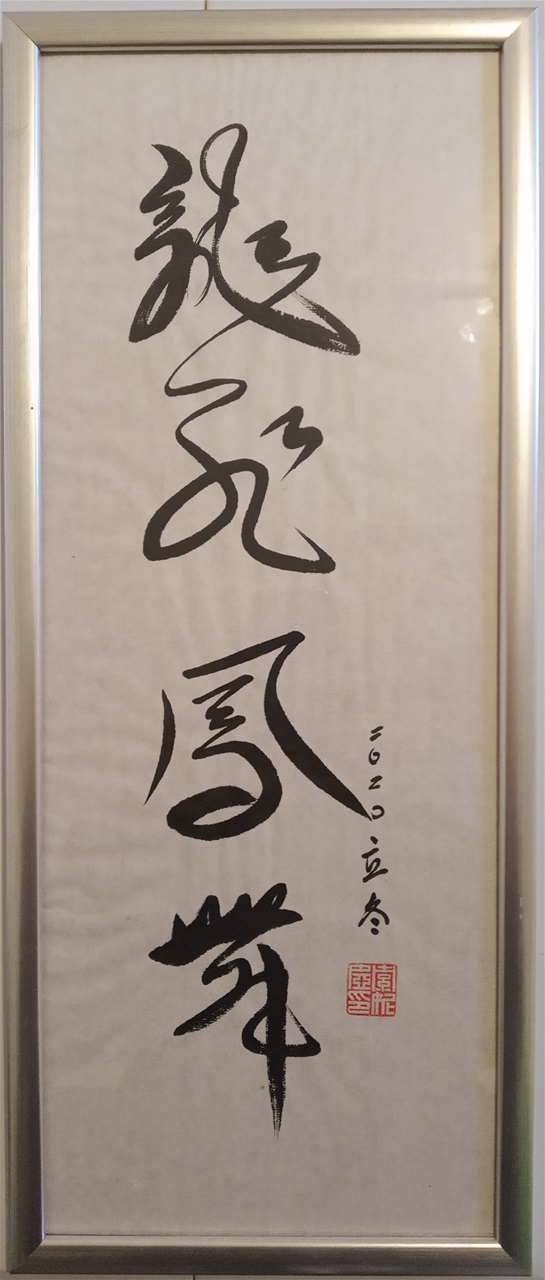 龍飛鳳舞
二〇二〇立冬